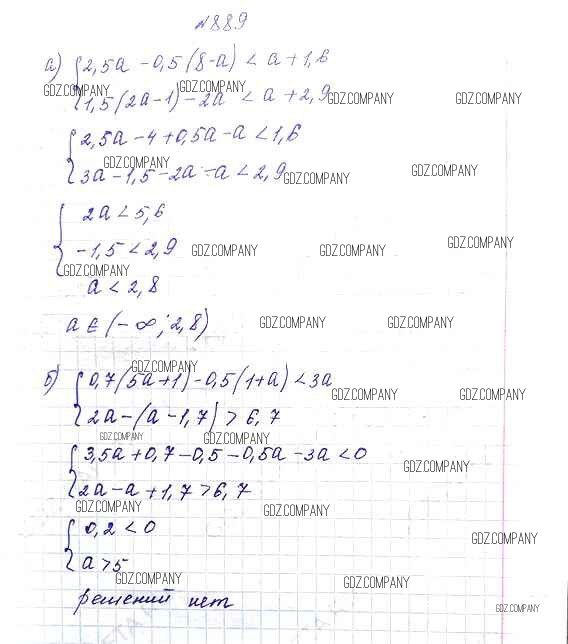 №889
а) { 2,5a - 0,5(8-a) < a + 1,6
GDZ.COMPANY GDZ.COMPANY
1,5(2a-1) - 2a < a + 2,9
GDZ.COMPANY GDZ.COMPANY
{ 2,5a - 4 + 0,5a - a < 1,6
GDZ.COMPANY
3a - 1,5 - 2a - a < 2,9
GDZ.COMPANY GDZ.COMPANY
{ 2a < 5,6
-1,5 < 2,9
GDZ.COMPANY GDZ.COMPANY GDZ.COMPANY
GDZ.COMPANY
a < 2,8
a ∈ (-∞; 2,8)
GDZ.COMPANY GDZ.COMPANY
GDZ.COMPANY
б) { 0,7(5a+1) - 0,5(1+a) < 3a
GDZ.COMPANY GDZ.COMPANY
2a - (a - 1,7) > 6,7
GDZ.COMPANY GDZ.COMPANY
{ 3,5a + 0,7 - 0,5 - 0,5a - 3a < 0
GDZ.COMPANY
2a - a + 1,7 > 6,7
GDZ.COMPANY GDZ.COMPANY
{ 0,2 < 0
GDZ.COMPANY
a > 5
GDZ.COMPANY GDZ.COMPANY
решений нет
GDZ.COMPANY